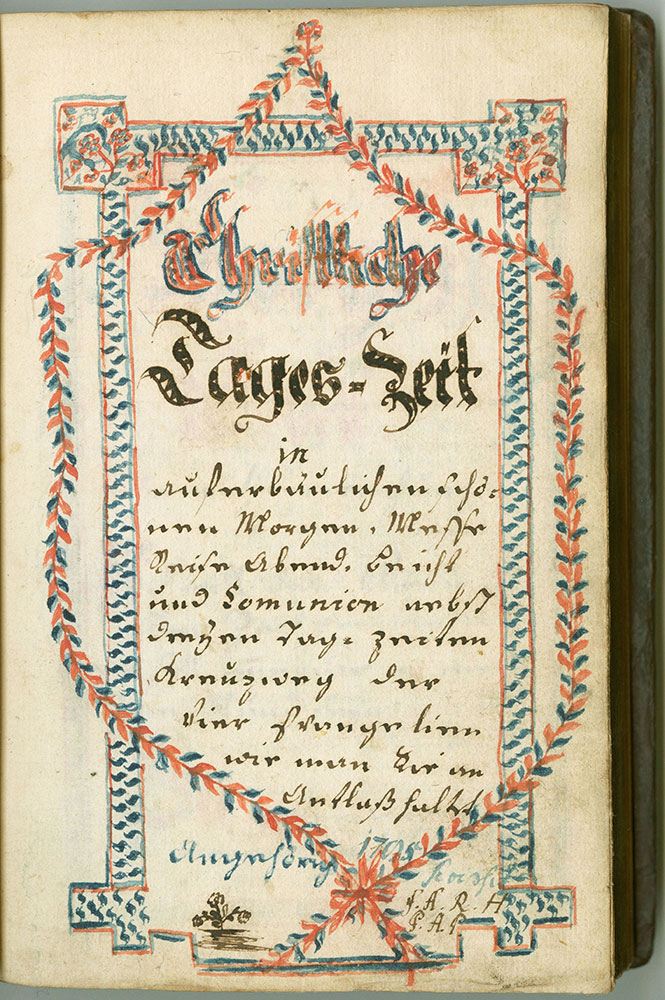 Christliche
Tages-Zeit
in
auferbäulichen schö-
nen Morgen, Messe
Reise Abend, beicht
und Comunion nebst
dreÿen Tag-zeiten
Kreuzweg der
Vier Evangelien
wie man Sie an
Antlaß haltet
Angehörig
A. R. H